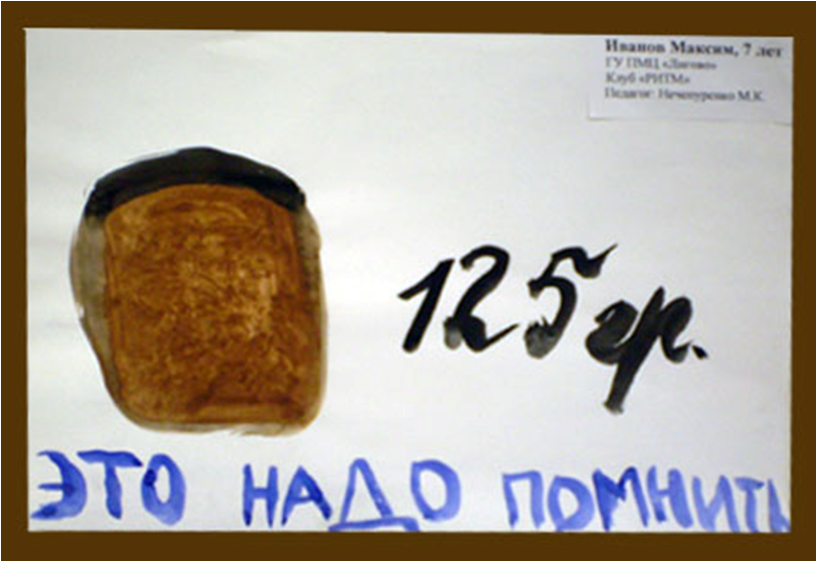 Иванов Максим, 7 лет
ГУ ПМЦ «Лигово»
Клуб «РИТМ»
Педагог: Нечепуренко М.К.
125 гр.
ЭТО НАДО ПОМНИТЬ